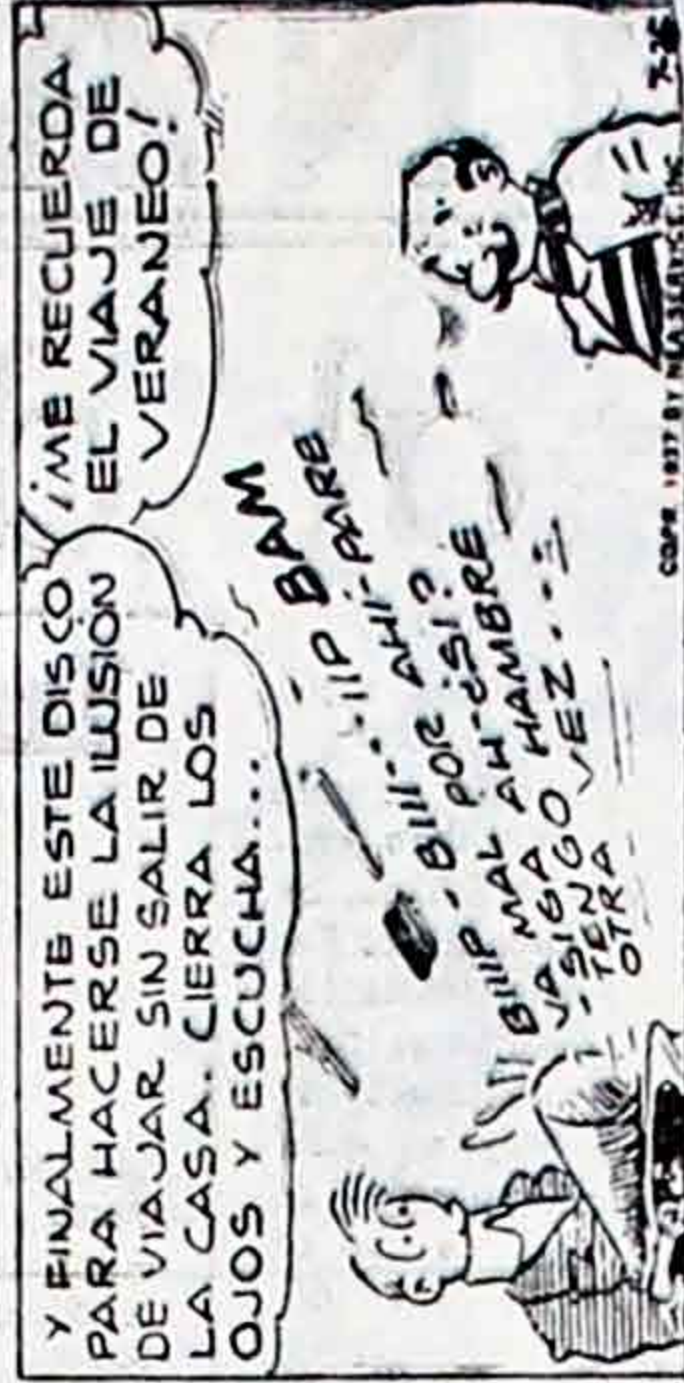 Y FINALMENTE ESTE DISCO
PARA HACERSE LA ILUSIÓN
DE VIAJAR SIN SALIR DE
LA CASA. CIERRA LOS
OJOS Y ESCUCHA...
¡ME RECUERDA
EL VIAJE DE
VERANEO!
BIIIP - BIII - . . IIP BAM
VA MAL POR AHI? AHI - PARE
- SIGA AH - ¿SI?
TENGO HAMBRE
OTRA VEZ . . .
COPR. 1937 BY NEA SERVICE, INC.
7-26